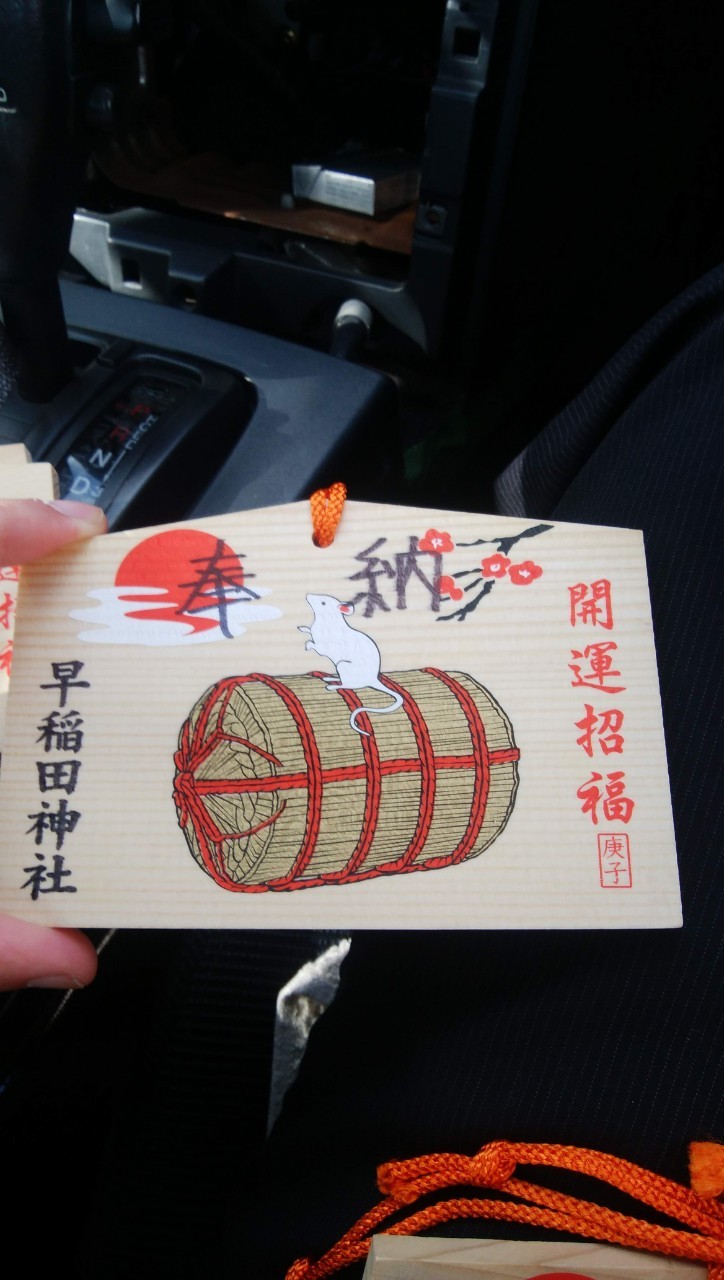 奉納
開運招福
庚子
早稲田神社
N
D